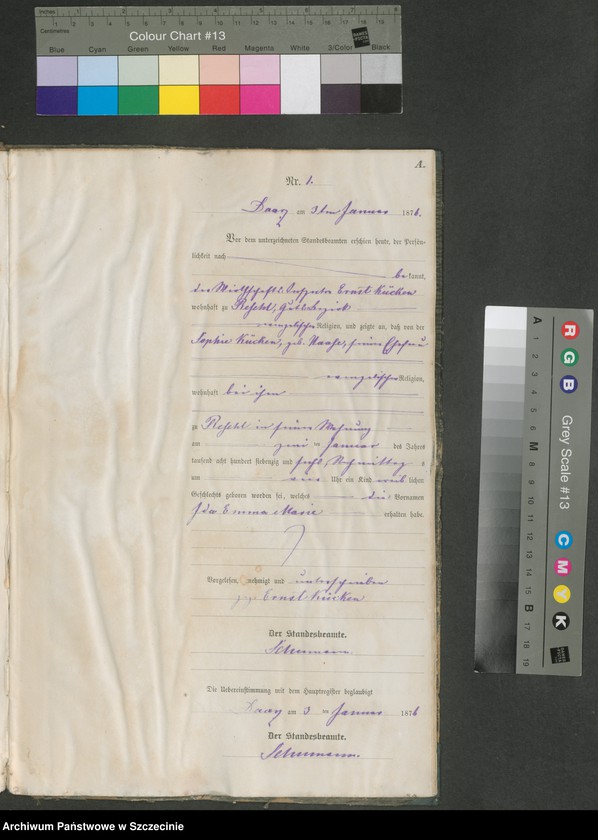 Inches
Centimetres
Colour Chart #13
Blue Cyan Green Yellow Red Magenta White 3/Color Black
A.
Nr. 1.
am 3ten Januar 1876.
Vor dem unterzeichneten Standesbeamten erschien heute, der Persön-
lichkeit nach
be kannt,
der Wirthschafts Inspector Ernst Kücken
wohnhaft zu Gutsbezirk
evangelischer Religion, und zeigte an, daß von der
Sophie Kücken, geb. Haase, seiner Ehefrau
evangelischer Religion,
wohnhaft bei ihm
zu in seiner Wohnung
am zwei ten Januar des Jahres
tausend acht hundert siebenzig und sechs, Nachmittags
um Uhr ein Kind weib lichen
Geschlechts geboren worden sei, welches die Vornamen
Ida Emma Marie erhalten habe.
Vorgelesen, genehmigt und unterschrieben
gez. Ernst Kücken
Der Standesbeamte.
Schumann.
Die Uebereinstimmung mit dem Hauptregister beglaubigt
am 3 ten Januar 1876
Der Standesbeamte.
Schumann.
R G B
Grey Scale #13
C M Y K
A 1 2 3 4 5 6 M 8 9 10 11 12 13 14 15 B 17 18 19
Archiwum Państwowe w Szczecinie